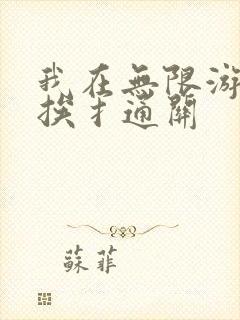 我在無限游
挨才通關
蘇菲